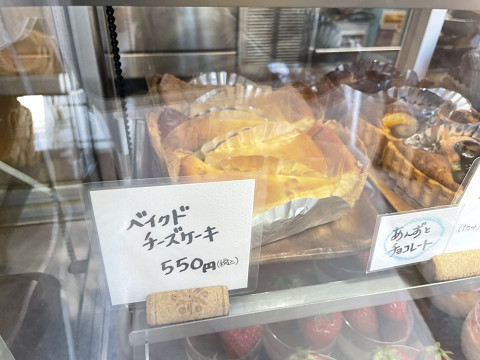 ベイクド
チーズケーキ
550円(税込)
あんずと
チョコレート